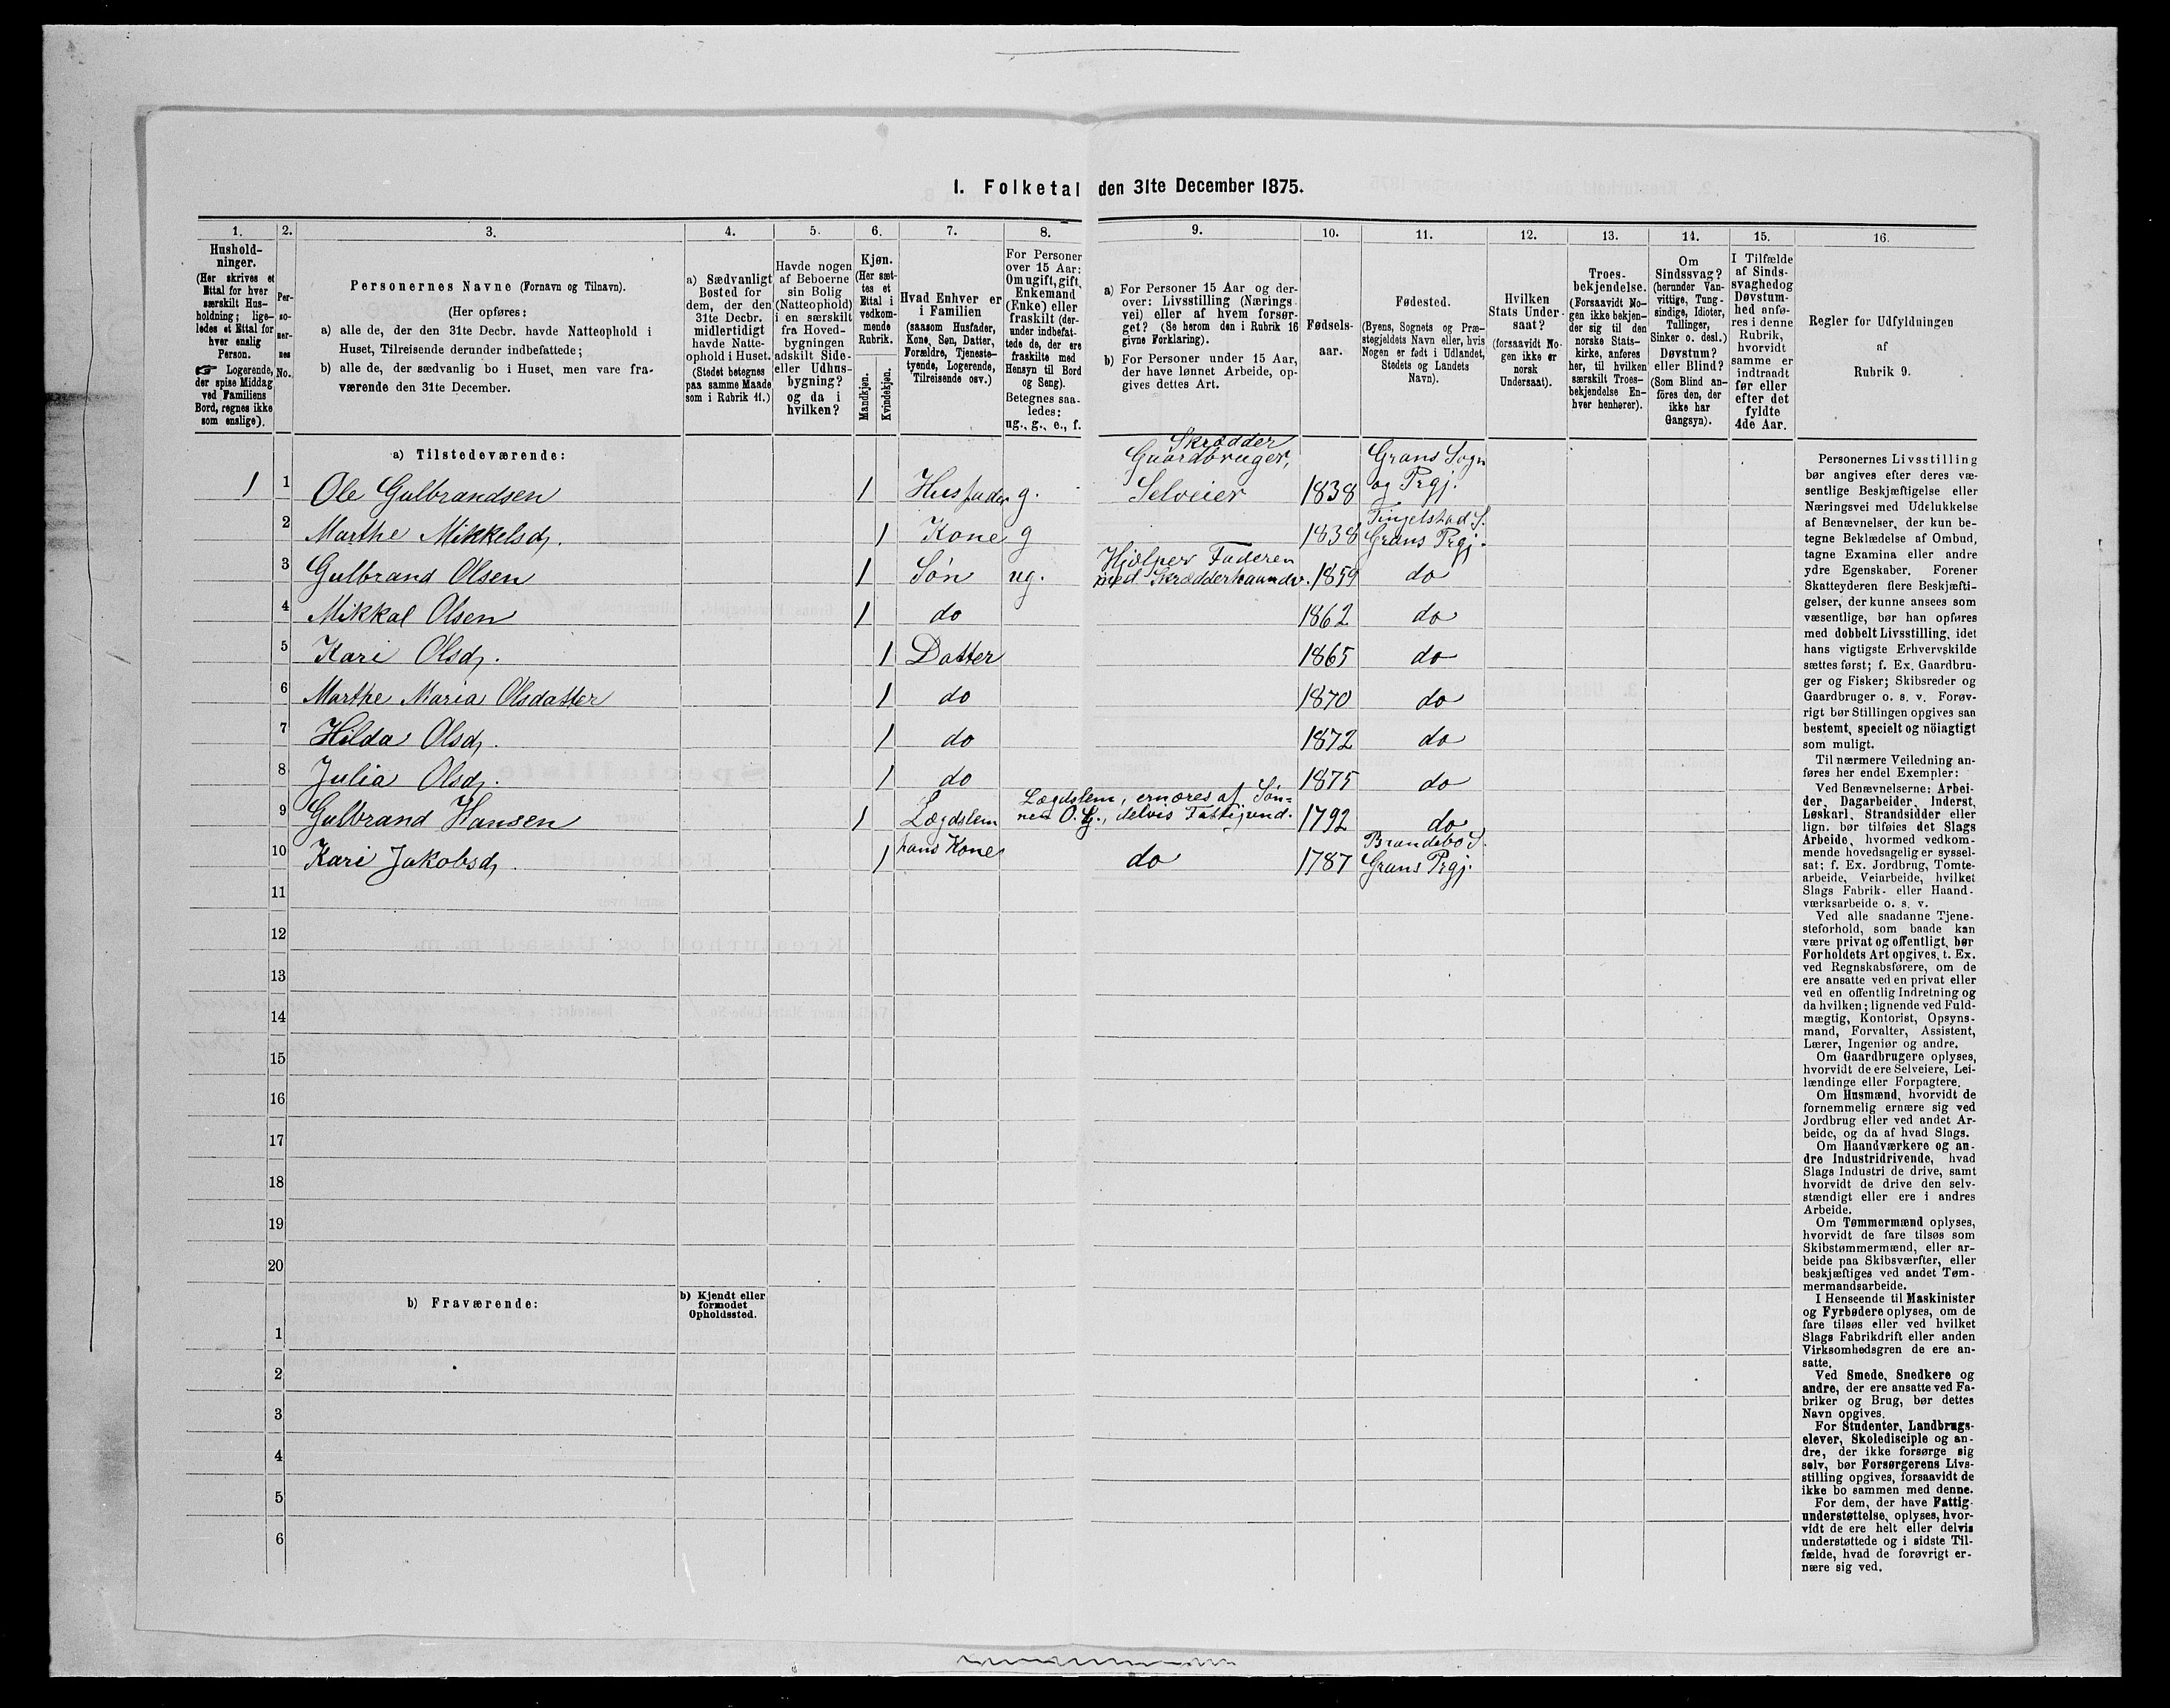 I. Folketal den 31te December 1875.
1.
Hushold-
ninger.
(Her skrives et
Ettal for hver
særskilt Hus-
holdning; lige-
ledes et Ettal for
hver enslig
Person.
☞ Logerende,
der spise Middag
ved Familiens
Bord, regnes ikke
som enslige).
2.
Per-
so-
ner-
nes
No.
3.
Personernes Navne (Fornavn og Tilnavn).
(Her opføres:
a) alle de, der den 31te Decbr. havde Natteophold i
Huset, Tilreisende derunder indbefattede;
b) alle de, der sædvanlig bo i Huset, men vare fra-
værende den 31te December.
4.
a) Sædvanligt
Bosted for
dem, der den
31te Decbr.
midlertidigt
havde Natte-
ophold i Huset.
(Stedet betegnes
paa samme Maade
som i Rubrik 11.)
5.
Havde nogen
af Beboerne
sin Bolig
(Natteophold)
i en særskilt
fra Hoved-
bygningen
adskilt Side-
eller Udhus-
bygning?
og da i
hvilken?
6.
Kjøn.
(Her sæt-
tes et
Ettal i
vedkom-
mende
Rubrik.
Mandkjøn.
Kvindekjøn.
7.
Hvad Enhver er
i Familien
(saasom Husfader,
Kone, Søn, Datter,
Forældre, Tjeneste-
tyende, Logerende,
Tilreisende osv.)
8.
For Personer
over 15 Aar:
Om ugift, gift,
Enkemand
(Enke) eller
fraskilt (der-
under indbefat-
tede de, der ere
fraskilte med
Hensyn til Bord
og Seng).
Betegnes saa-
ledes:
ug., g., e., f.
9.
a) For Personer 15 Aar og der-
over: Livsstilling (Nærings-
vei) eller af hvem forsør-
get? (Se herom den i Rubrik 16
givne Forklaring).
b) For Personer under 15 Aar,
der have lønnet Arbeide, op-
gives dettes Art.
10.
Fødsels-
aar.
11.
Fødested.
(Byens, Sognets og Præ-
stegjeldets Navn eller, hvis
Nogen er født i Udlandet,
Stedets og Landets
Navn).
12.
Hvilken
Stats Under-
saat?
(forsaavidt No-
gen ikke er
norsk
Undersaat).
13.
Troes-
bekjendelse.
(Forsaavidt No-
gen ikke bekjen-
der sig til den
norske Stats-
kirke, anføres
her, til hvilken
særskilt Troes-
bekjendelse En-
hver henhører).
14.
Om
Sindssvag?
(herunder Van-
vittige, Tung-
sindige, Idioter,
Tullinger,
Sinker o. desl.)
Døvstum?
eller Blind?
(Som Blind an-
føres den, der
ikke har
Gangsyn).
15.
I Tilfælde
af Sinds-
svaghed og
Døvstum-
hed anfø-
res i denne
Rubrik,
hvorvidt
samme er
indtraadt
før eller
efter det
fyldte
4de Aar.
16.
Regler for Udfyldningen
af
Rubrik 9.
a) Tilstedeværende:
1 1 Ole Gulbrandsen 1 Husfader g. Skrædder Gaardbruger, Selveier 1838 Grans Sogn og Prgj.
2 Marthe Mikkelsd. 1 Kone g 1838 Tingelstad S. Grans Prgj.
3 Gulbrand Olsen 1 Søn ug. Hjælper Faderen med Skrædderhaandv. 1859 do
4 Mikkal Olsen 1 do 1862 do
5 Kari Olsd. 1 Datter 1865 do
6 Marthe Maria Olsdatter 1 do 1870 do
7 Hilda Olsd. 1 do 1872 do
8 Julia Olsd. 1 do 1875 do
9 Gulbrand Hansen 1 Lægdslem Lægdslem, ernæres af Søn= nen O. G., delvis Fattigund. 1792 do
10 Kari Jakobsd. 1 hans Kone do 1787 Brandebo S. Grans Prgj.
11
12
13
14
15
16
17
18
19
20
b) Fraværende:
b) Kjendt eller
formodet
Opholdssted.
1
2
3
4
5
6
Personernes Livsstilling
bør angives efter deres væ-
sentlige Beskjæftigelse eller
Næringsvei med Udelukkelse
af Benævnelser, der kun be-
tegne Beklædelse af Ombud,
tagne Examina eller andre
ydre Egenskaber. Forener
Skatteyderen flere Beskjæfti-
gelser, der kunne ansees som
væsentlige, bør han opføres
med dobbelt Livsstilling, idet
hans vigtigste Erhvervskilde
sættes først; f. Ex. Gaardbru-
ger og Fisker; Skibsreder og
Gaardbruger o. s. v. Forøv-
rigt bør Stillingen opgives saa
bestemt, specielt og nöiagtigt
som muligt.
Til nærmere Veiledning an-
føres her endel Exempler:
Ved Benævnelserne: Arbei-
der, Dagarbeider, Inderst,
Løskarl, Strandsidder eller
lign. bør tilføies det Slags
Arbeide, hvormed vedkom-
mende hovedsagelig er syssel-
sat; f. Ex. Jordbrug, Tomte-
arbeide, Veiarbeide, hvilket
Slags Fabrik- eller Haand-
værksarbeide o. s. v.
Ved alle saadanne Tjene-
steforhold, som baade kan
være privat og offentligt, bør
Forholdets Art opgives, t. Ex.
ved Regnskabsførere, om de
ere ansatte ved en privat eller
ved en offentlig Indretning og
da hvilken; lignende ved Fuld-
mægtig, Kontorist, Opsyns-
mand, Forvalter, Assistent,
Lærer, Ingeniør og andre.
Om Gaardbrugere oplyses,
hvorvidt de ere Selveiere, Lei-
lændinge eller Forpagtere.
Om Husmænd, hvorvidt de
fornemmelig ernære sig ved
Jordbrug eller ved andet Ar-
beide, og da af hvad Slags.
Om Haandværkere og an-
dre Industridrivende, hvad
Slags Industri de drive, samt
hvorvidt de drive den selv-
stændigt eller ere i andres
Arbeide.
Om Tømmermænd oplyses,
hvorvidt de fare tilsøs som
Skibstømmermænd, eller ar-
beide paa Skibsværfter, eller
beskjæftiges ved andet Tøm-
mermandsarbeide.
I Henseende til Maskinister
og Fyrbødere oplyses, om de
fare tilsøs eller ved hvilket
Slags Fabrikdrift eller anden
Virksomhedsgren de ere an-
satte.
Ved Smede, Snedkere og
andre, der ere ansatte ved Fa-
briker og Brug, bør dettes
Navn opgives.
For Studenter, Landbrugs-
elever, Skoledisciple og an-
dre, der ikke forsørge sig
selv, bør Forsørgerens Livs-
stilling opgives, forsaavidt de
ikke bo sammen med denne.
For dem, der have Fattig-
understøttelse, oplyses, hvor-
vidt de ere helt eller delvis
understøttede og i sidste Til-
fælde, hvad de forøvrigt er-
nære sig ved.